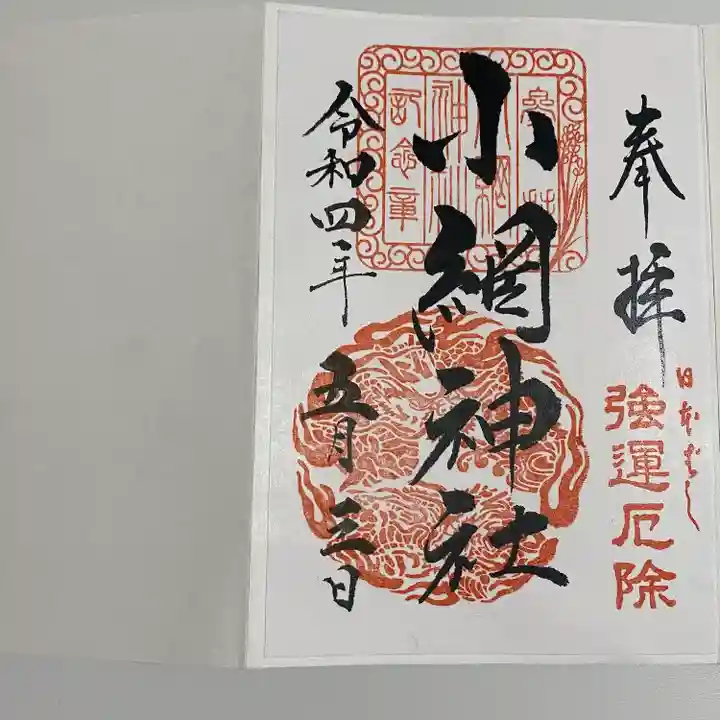 奉拝
日本ばし
強運厄除
小網神社
令和四年五月三日